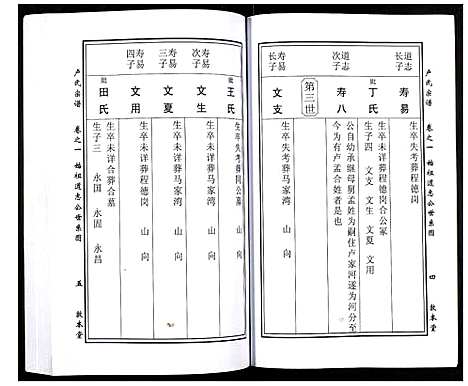 卢氏宗谱
卷之一
始祖道志公世系图
四
敦本堂
道志
长子
寿易
生卒失考葬程德岗
妣
丁氏
生卒未详葬程德岗合公冢
生子四 文支 文生 文夏 文用
道志
次子
寿八
公自幼承继母舅孟姓为嗣住卢家河遂为河分至
今为有卢孟合姓者是也
第三世
寿易
长子
文支
生卒失考葬程德岗
妣
王氏
生卒失考葬同公墓
寿易
次子
文生
生卒未详葬马家湾 山 向
寿易
三子
文夏
生卒未详葬马家湾 山 向
寿易
四子
文用
生卒未详葬程德岗 山 向
妣
田氏
生卒未详合葬合墓
生子三 永国 永固 永昌
卢氏宗谱
卷之一
始祖道志公世系图
五
敦本堂